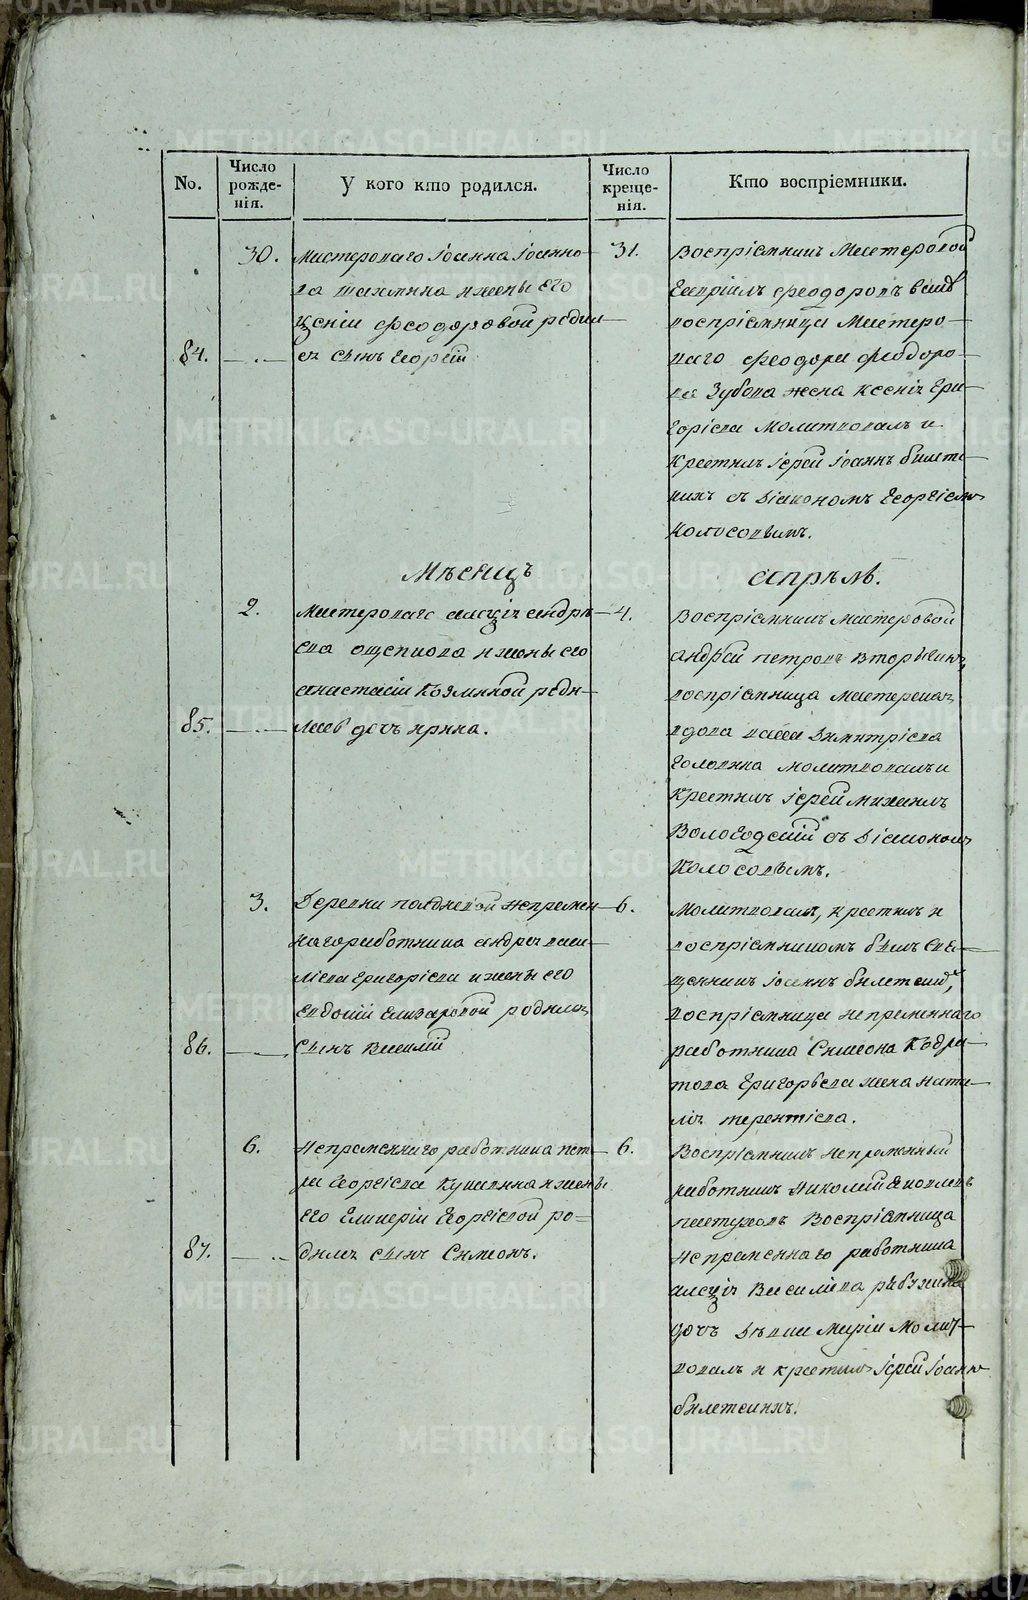 No.
Число рожденія.
У кого кто родился.
Число крещенія.
Кто воспріемники.
30.
Мастероваго Іоанна Іоанно-
ва
и жены его
Ѳеодоровой роди-
84.
сынъ Георгій
31.
Воспріемникъ Мастеровой
Ѳеодоровъ
воспріемница Мастеро-
ваго Ѳеодора Ѳиодоро-
ва Зубова жена Ксенія Гри-
горіева Молитвовалъ и
Крестилъ Іерей Іоаннъ Билет-
никъ съ Діакономъ Георгіемъ
Колосовымъ.
Мѣсяцъ
апрѣль.
2.
Мастероваго Андрѣ-
ева и жены его
анастасіи Козминой роди-
85.
лась дочь ирина.
4.
Воспріемникъ мастеровой
андрей петровъ
воспріемница мастерская
вдова Димитріева
Голопина молитвовалъ и
Крестилъ Іерей михаилъ
Вологодскій съ Діакономъ
Колосовымъ.
3.
Деревни непремен-
наго работника андрея васи-
ліева григоріева и жены его
евдокіи Елизаровой родился
86.
сынъ Василій
6.
Молитвовалъ, крестилъ и
воспріемникомъ былъ свя-
щенникъ Іоаннъ
воспріемница непременнаго
работника Симеона
Григорьева жена ната-
лія терентіева.
6.
Непременнаго работника пет-
ра Георгіева и жены
его Гликеріи Георгіевой ро-
87.
дился сынъ Симеонъ.
6.
Воспріемникъ непременный
работникъ Николай Яковлевъ
пастуховъ Воспріемница
непременнаго работника
алексія Василіева
дочь Марія Молит-
вовалъ и крестилъ Іерей Іоаннъ
METRIKI.GASO-URAL.RU